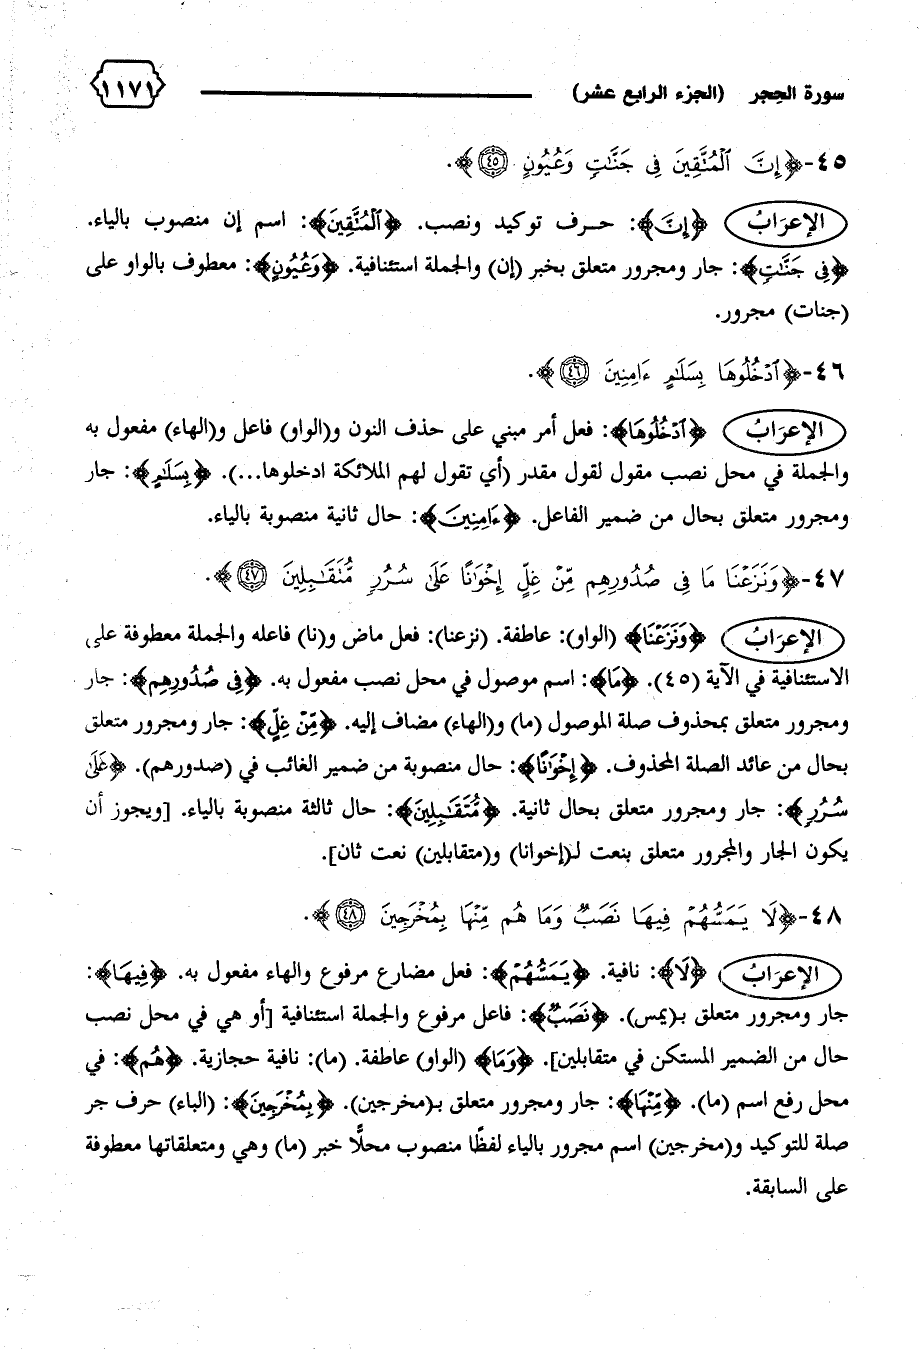 سورة الحِجر (الجزء الرابع عشر) ١١٧١
٤٥-﴿إِنَّ ٱلْمُتَّقِينَ فِى جَنَّٰتٍ وَعُيُونٍ ٤٥﴾.
الإعرَابُ ﴿إِنَّ﴾: حرف توكيد ونصب. ﴿ٱلْمُتَّقِينَ﴾: اسم إن منصوب بالياء.
﴿فِى جَنَّٰتٍ﴾: جار ومجرور متعلق بخبر (إن) والجملة استئنافية. ﴿وَعُيُونٍ﴾: معطوف بالواو على
(جنات) مجرور.
٤٦-﴿ٱدْخُلُوهَا بِسَلَٰمٍ ءَامِنِينَ ٤٦﴾.
الإعرَابُ ﴿ٱدْخُلُوهَا﴾: فعل أمر مبني على حذف النون و(الواو) فاعل و(الهاء) مفعول به
والجملة في محل نصب مقول لقول مقدر (أي تقول لهم الملائكة ادخلوها...). ﴿بِسَلَٰمٍ﴾: جار
ومجرور متعلق بحال من ضمير الفاعل. ﴿ءَامِنِينَ﴾: حال ثانية منصوبة بالياء.
٤٧-﴿وَنَزَعْنَا مَا فِى صُدُورِهِم مِّنْ غِلٍّ إِخْوَٰنًا عَلَىٰ سُرُرٍ مُّتَقَٰبِلِينَ ٤٧﴾.
الإعرَابُ ﴿وَنَزَعْنَا﴾ (الواو): عاطفة. (نزعنا): فعل ماض و(نا) فاعله والجملة معطوفة على
الاستئنافية في الآية (٤٥). ﴿مَا﴾: اسم موصول في محل نصب مفعول به. ﴿فِى صُدُورِهِم﴾: جار
ومجرور متعلق بمحذوف صلة الموصول (ما) و(الهاء) مضاف إليه. ﴿مِّنْ غِلٍّ﴾: جار ومجرور متعلق
بحال من عائد الصلة المحذوف. ﴿إِخْوَٰنًا﴾: حال منصوبة من ضمير الغائب في (صدورهم). ﴿عَلَىٰ
سُرُرٍ﴾: جار ومجرور متعلق بحال ثانية. ﴿مُّتَقَٰبِلِينَ﴾: حال ثالثة منصوبة بالياء. [ويجوز أن
يكون الجار والمجرور متعلق بنعت لـ(إخوانا) و(متقابلين) نعت ثان].
٤٨-﴿لَا يَمَسُّهُمْ فِيهَا نَصَبٌ وَمَا هُم مِّنْهَا بِمُخْرَجِينَ ٤٨﴾.
الإعرَابُ ﴿لَا﴾: نافية. ﴿يَمَسُّهُمْ﴾: فعل مضارع مرفوع والهاء مفعول به. ﴿فِيهَا﴾:
جار ومجرور متعلق بـ(يمس). ﴿نَصَبٌ﴾: فاعل مرفوع والجملة استئنافية [أو هي في محل نصب
حال من الضمير المستكن في متقابلين]. ﴿وَمَا﴾ (الواو) عاطفة. (ما): نافية حجازية. ﴿هُم﴾: في
محل رفع اسم (ما). ﴿مِّنْهَا﴾: جار ومجرور متعلق بـ(مخرجين). ﴿بِمُخْرَجِينَ﴾: (الباء) حرف جر
صلة للتوكيد و(مخرجين) اسم مجرور بالياء لفظًا منصوب محلًّا خبر (ما) وهي ومتعلقاتها معطوفة
على السابقة.